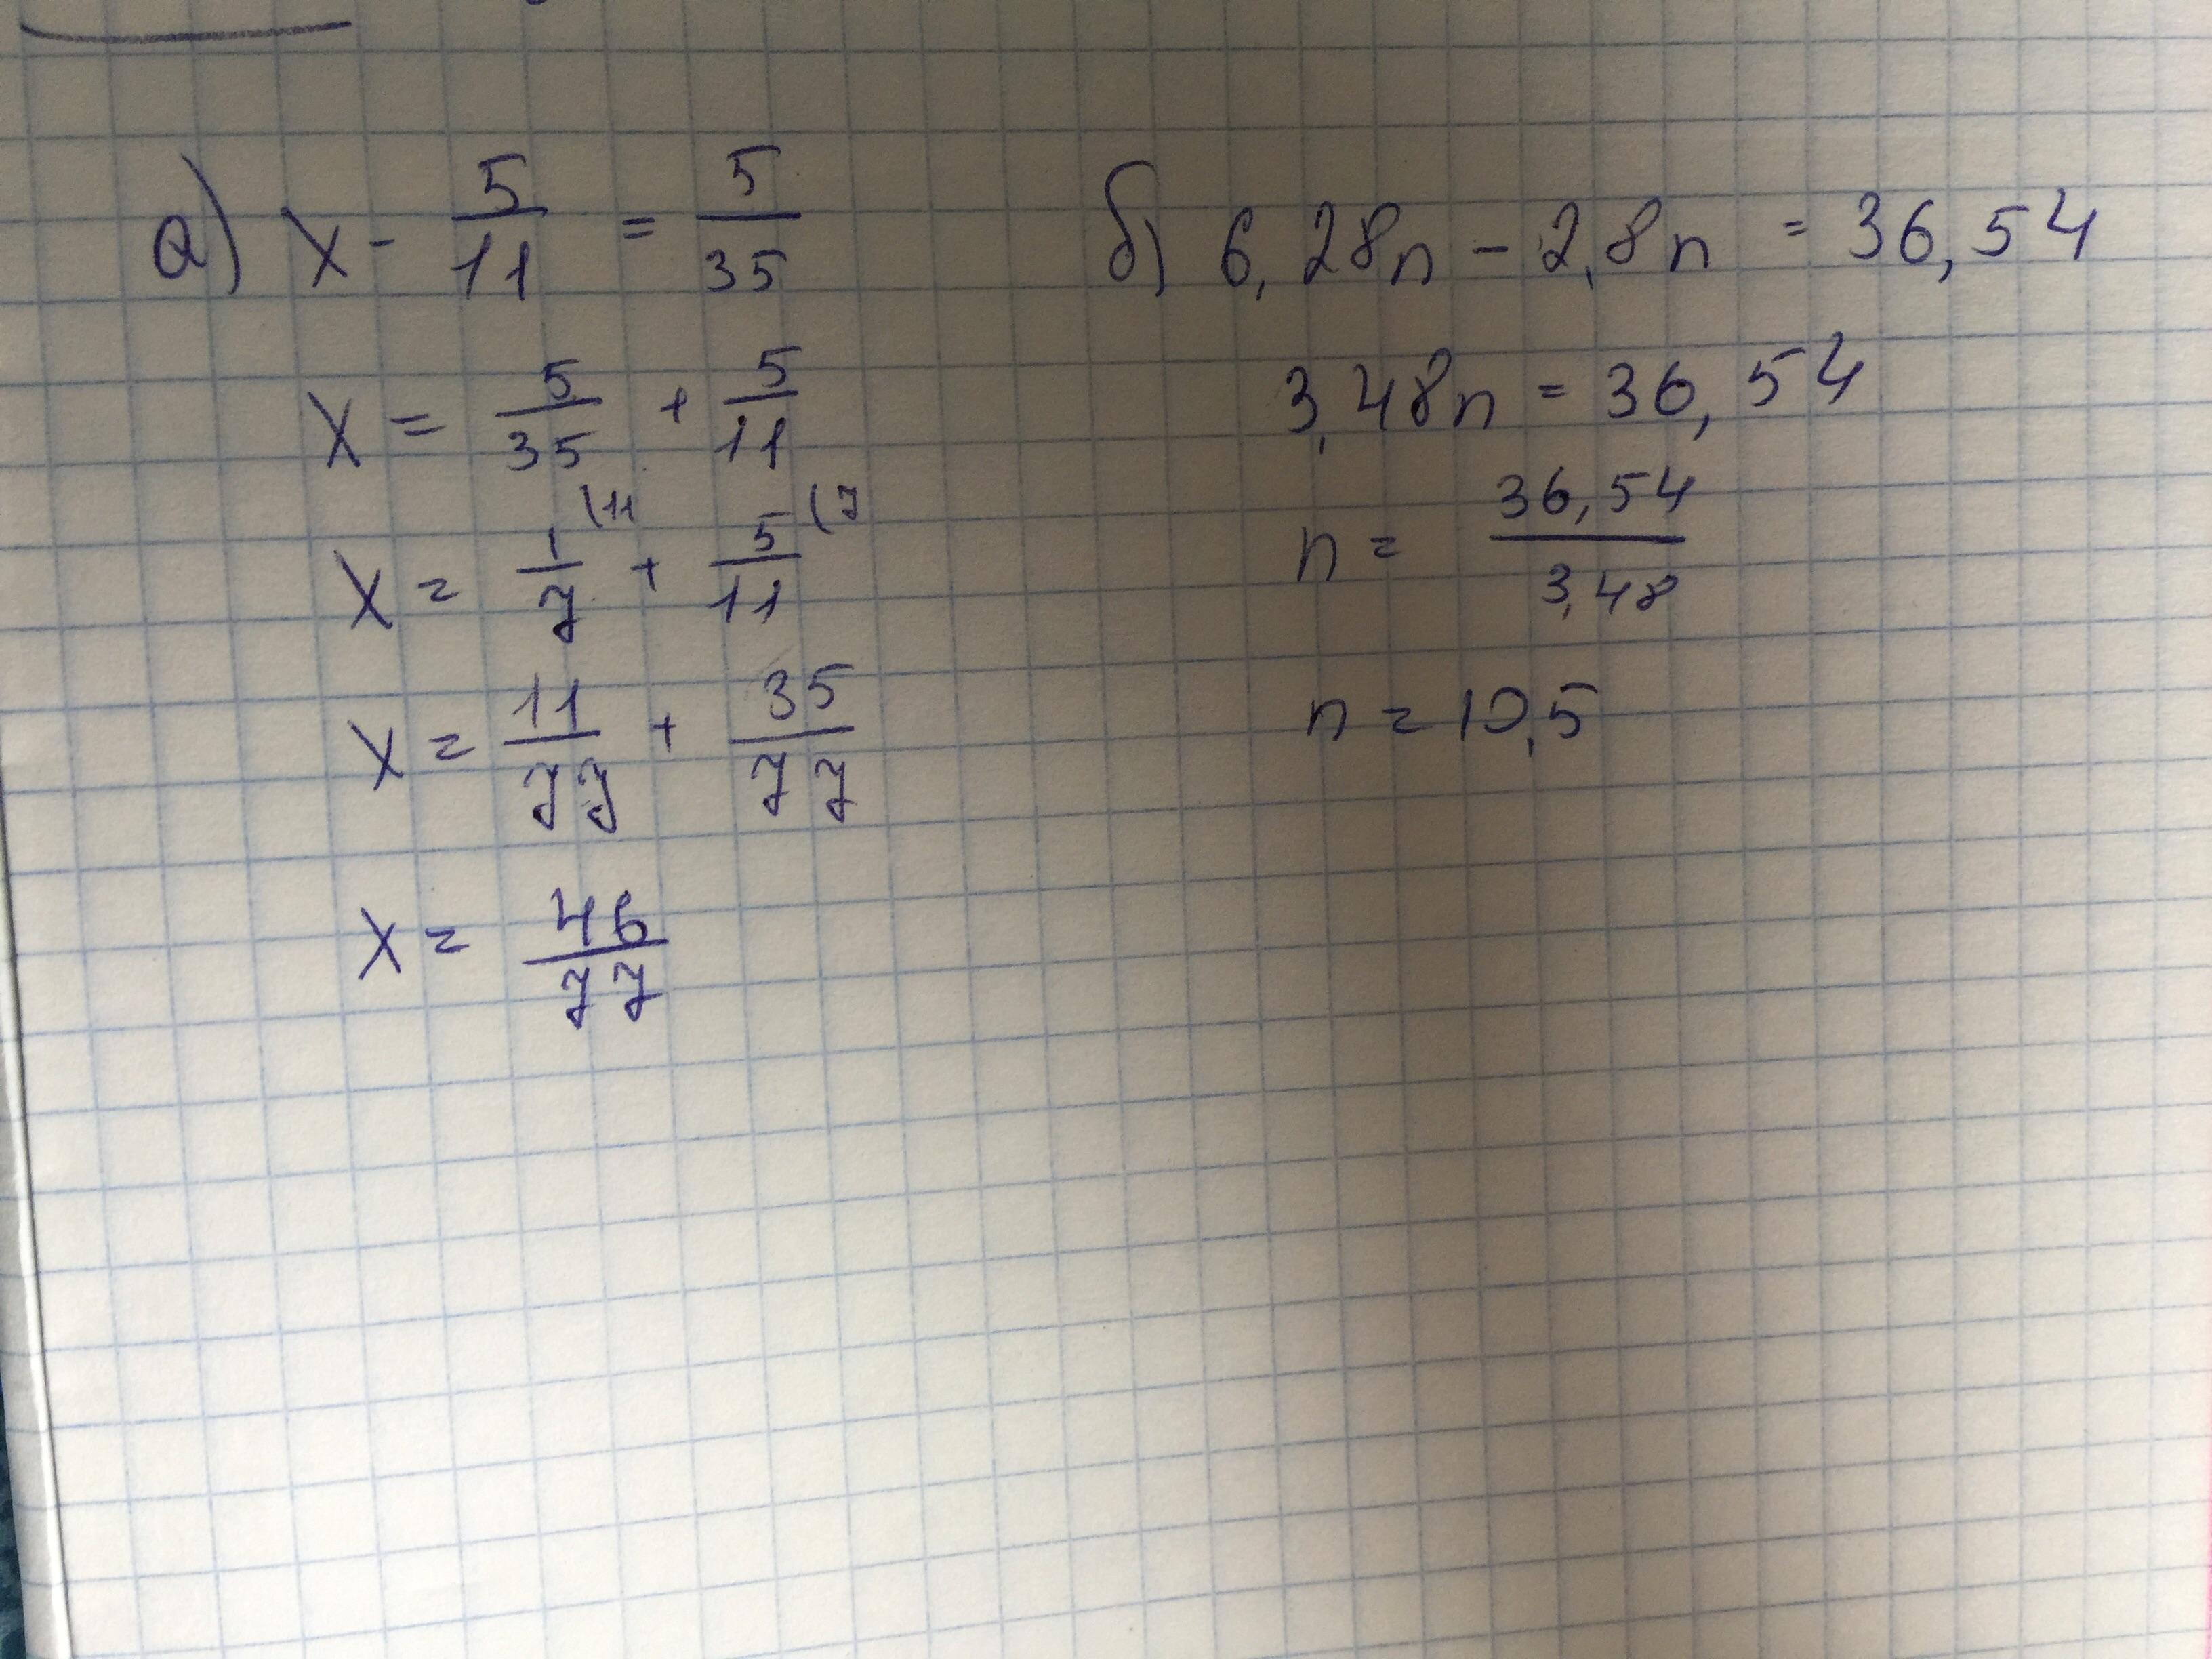 а) x - 5/11 = 5/35
x = 5/35 + 5/11
x = 1/7 (11 + 5/11 (7
x = 11/77 + 35/77
x = 46/77
б) 6,28n - 2,8n = 36,54
3,48n = 36,54
n = 36,54/3,48
n = 10,5